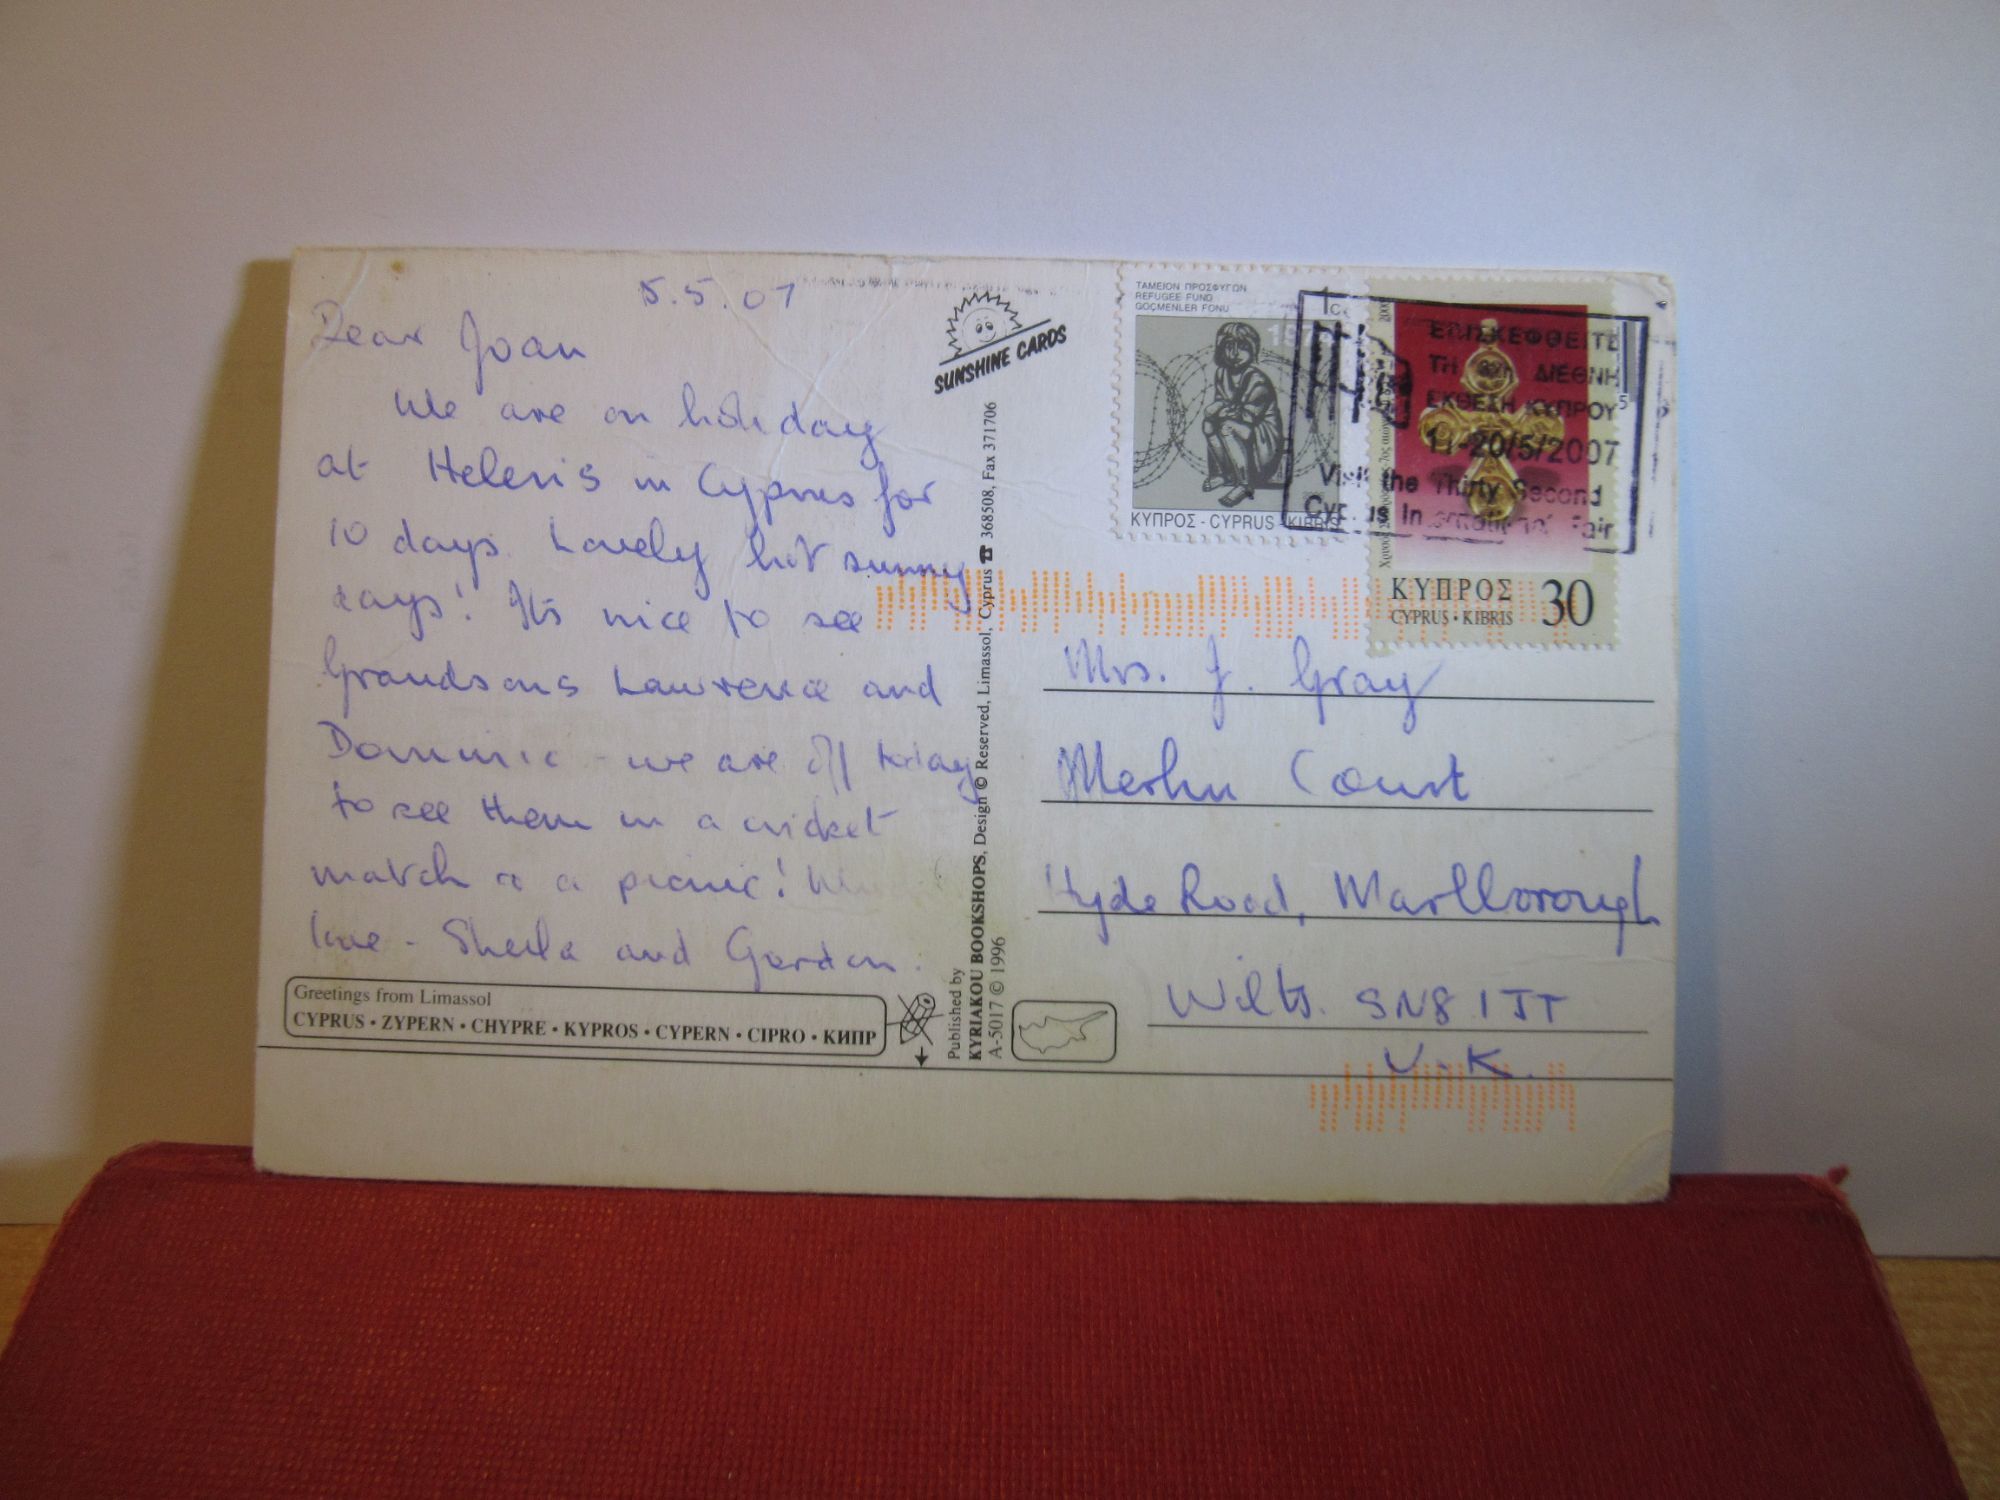 5.5.07
Dear Joan
We are on holiday
at Helen's in Cyprus for
10 days. Lovely hot sunny
days! It's nice to see
Grandsons Lawrence and
Dominic - we are off today
to see them in a cricket
match & a picnic!
love - Sheila and Gordon.
Greetings from Limassol
CYPRUS • ZYPERN • CHYPRE • KYPROS • CYPERN • CIPRO • КИПР
SUNSHINE CARDS
Published by
KYRIAKOU BOOKSHOPS, Design © Reserved, Limassol, Cyprus ☎ 368508, Fax 371706
A-5017 © 1996
ΤΑΜΕΙΟΝ ΠΡΟΣΦΥΓΩΝ
REFUGEE FUND
GÖÇMENLER FONU
1c
ΚΥΠΡΟΣ - CYPRUS - KIBRIS
ΕΠΙΣΚΕΦΘΕΙΤΕ
ΤΗ 32η ΔΙΕΘΝΗ
ΕΚΘΕΣΗ ΚΥΠΡΟΥ
11-20/5/2007
Visit the Thirty Second
Cyprus International Fair
ΚΥΠΡΟΣ
CYPRUS • KIBRIS
30
Mrs. J. Gray
Merlin Court
Hyde Road, Marlborough
Wilts. SN8 1JT
U.K.